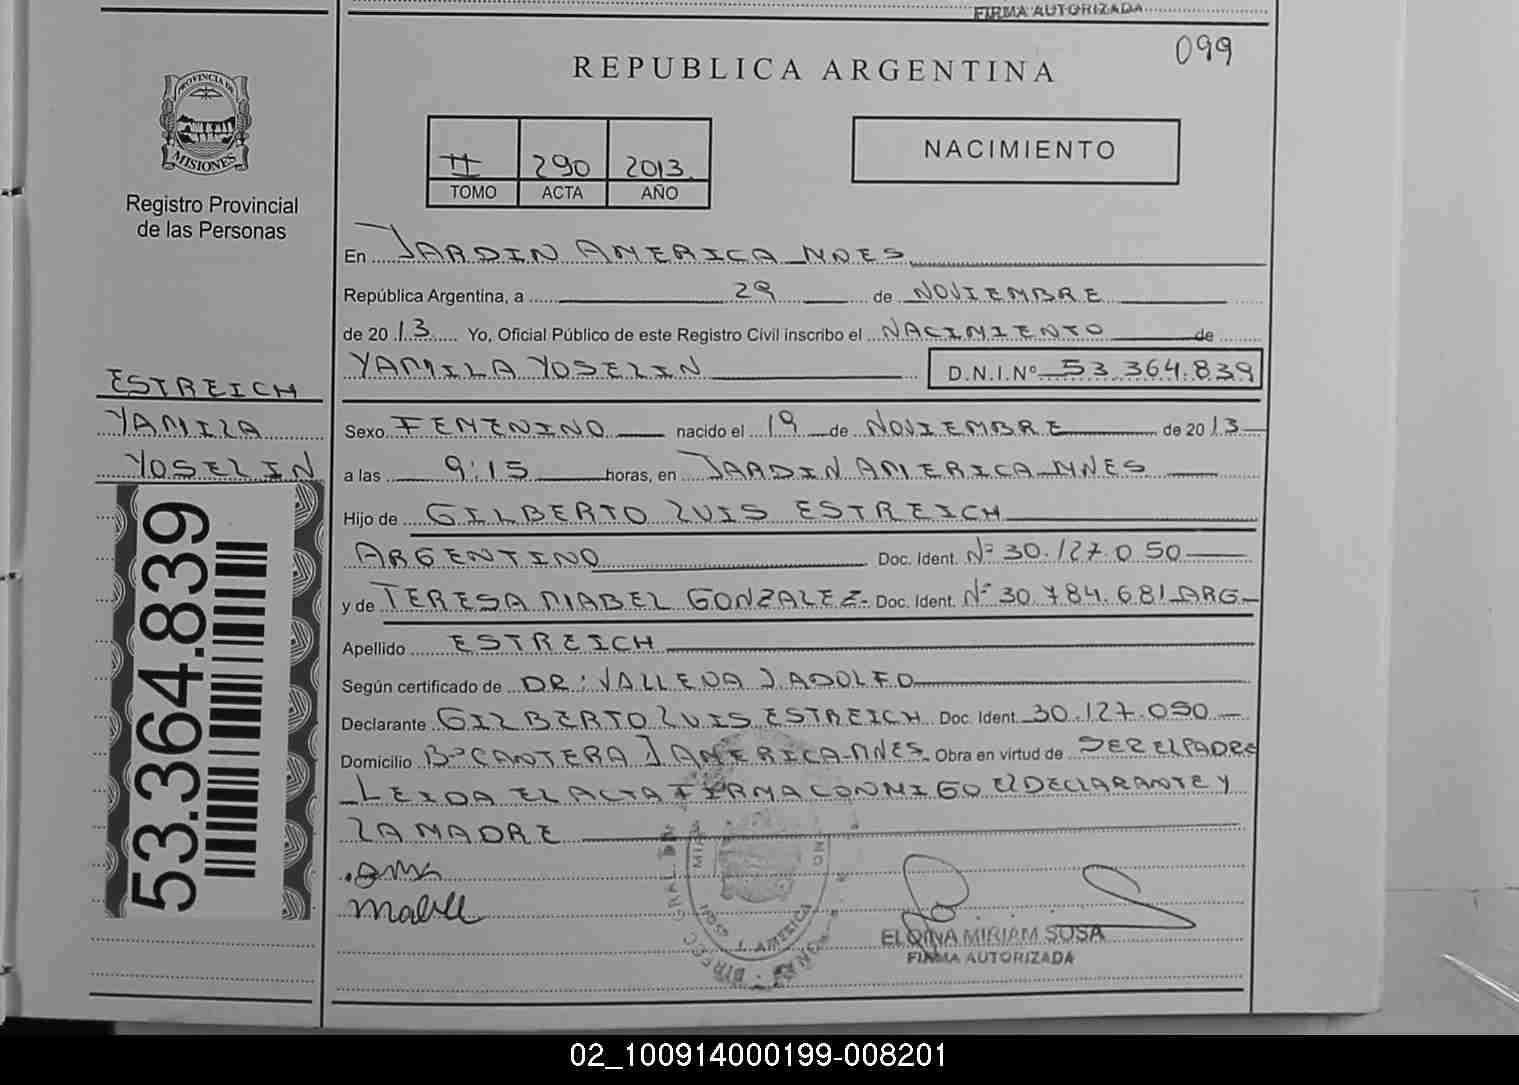 FIRMA AUTORIZADA
099
REPUBLICA ARGENTINA
PROVINCIA DE
MISIONES
Registro Provincial
de las Personas
II 290 2013.
TOMO ACTA AÑO
NACIMIENTO
En JARDIN AMERICA MNES
República Argentina, a 29 de NOVIEMBRE
de 2013 Yo, Oficial Público de este Registro Civil inscribo el NACIMIENTO de
YAMILA YOSELIN D.N.I.Nº 53.364.839
ESTREICH
YAMILA
YOSELIN
Sexo FEMENINO nacido el 19 de NOVIEMBRE de 2013
a las 9:15 horas, en JARDIN AMERICA MNES
Hijo de GILBERTO LUIS ESTREICH
ARGENTINO Doc. Ident. Nº 30.127.050
y de TERESA MABEL GONZALEZ Doc. Ident. Nº 30.784.681 ARG
Apellido ESTREICH
Según certificado de DR: J ADOLFO
Declarante GILBERTO LUIS ESTREICH Doc. Ident. 30.127.050
Domicilio Bº CANTERA J AMERICA-MNES. Obra en virtud de SER EL PADRE
LEIDA EL ACTA FIRMA CONMIGO El DECLARANTE Y
LA MADRE
53.364.839
J. AMERICA
ELOINA MIRIAM SOSA
FIRMA AUTORIZADA
02_100914000199-008201